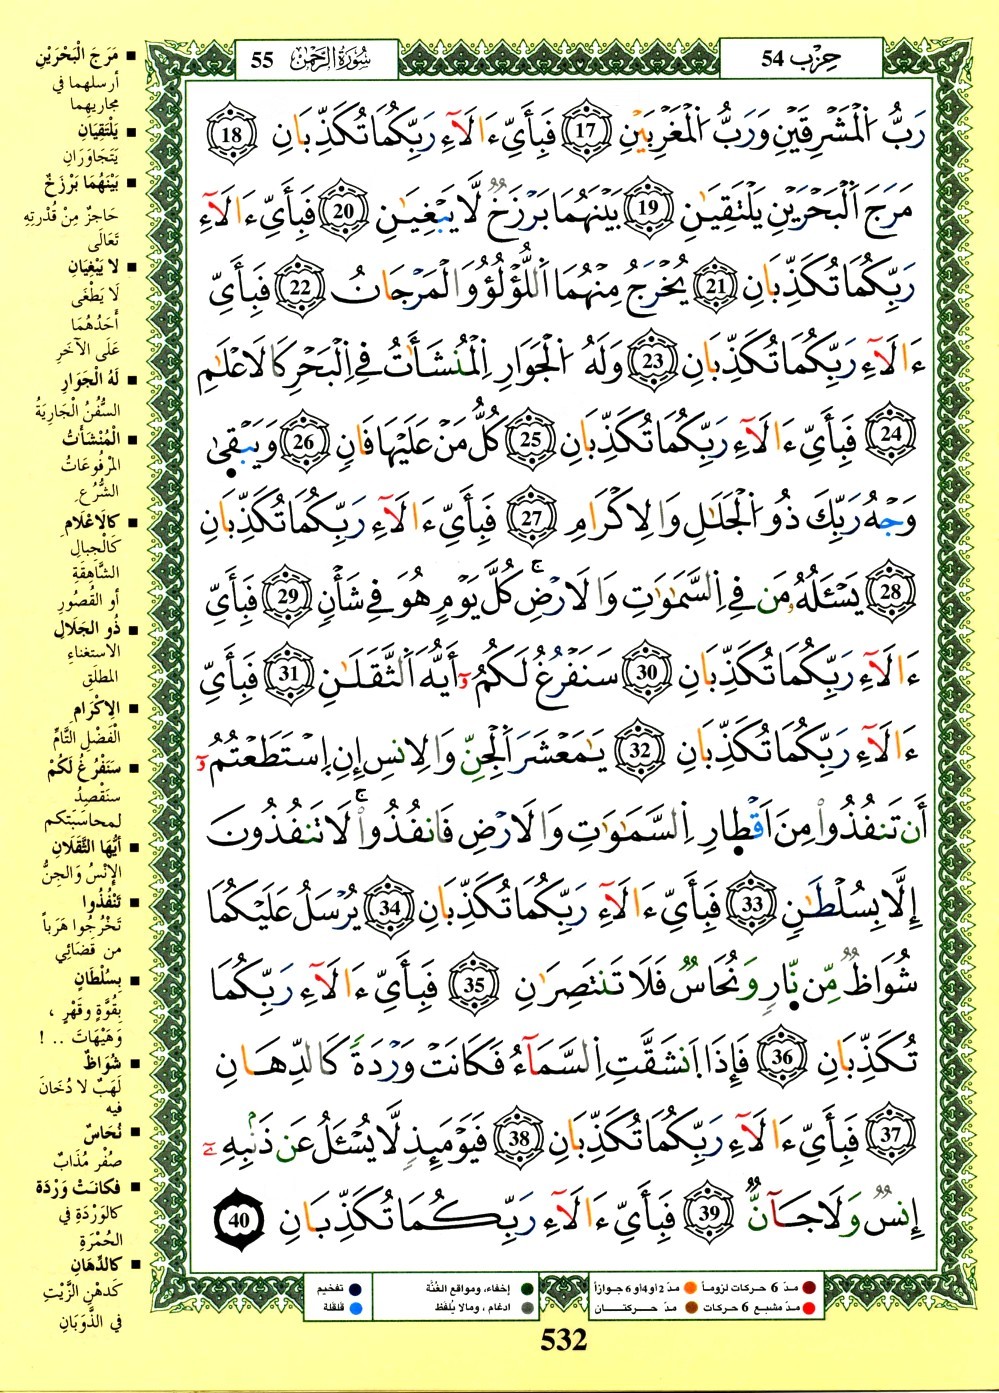 حِزْب 54
سُورَةُ الرَّحْمٰن 55
رَبُّ اُ۬لْمَشْرِقَيْنِ وَرَبُّ اُ۬لْمَغْرِبَيْنِ 17 فَبِأَيِّ ءَالَآءِ رَبِّكُمَا تُكَذِّبَانِ 18
مَرَجَ اَ۬لْبَحْرَيْنِ يَلْتَقِيَٰنِ 19 بَيْنَهُمَا بَرْزَخٌ لَّا يَبْغِيَٰنِ 20 فَبِأَيِّ ءَالَآءِ
رَبِّكُمَا تُكَذِّبَانِ 21 يُخْرَجُ مِنْهُمَا اَ۬للُّؤْلُؤُ وَالْمَرْجَانُ 22 فَبِأَيِّ
ءَالَآءِ رَبِّكُمَا تُكَذِّبَانِ 23 وَلَهُ اُ۬لْجَوَارِ اِ۬لْمُنشَـَٔاتُ فِے اِ۬لْبَحْرِ كَالَاعْلَٰمِ
24 فَبِأَيِّ ءَالَآءِ رَبِّكُمَا تُكَذِّبَانِ 25 كُلُّ مَنْ عَلَيْهَا فَانٍ 26 وَيَبْقَىٰ
وَجْهُ رَبِّكَ ذُو اُ۬لْجَلَٰلِ وَالِاكْرَامِ 27 فَبِأَيِّ ءَالَآءِ رَبِّكُمَا تُكَذِّبَانِ
28 يَسْـَٔلُهُۥ مَن فِے اِ۬لسَّمَٰوَٰتِ وَالَارْضِۚ كُلَّ يَوْمٍ هُوَ فِے شَأْنٍ 29 فَبِأَيِّ
ءَالَآءِ رَبِّكُمَا تُكَذِّبَانِ 30 سَنَفْرُغُ لَكُمُۥٓ أَيُّهَ اَ۬لثَّقَلَٰنِ 31 فَبِأَيِّ
ءَالَآءِ رَبِّكُمَا تُكَذِّبَانِ 32 يَٰمَعْشَرَ اَ۬لْجِنِّ وَالِانسِ إِنِ اِ۪سْتَطَعْتُمُۥٓ
أَن تَنفُذُواْ مِنَ اَقْطَارِ اِ۬لسَّمَٰوَٰتِ وَالَارْضِ فَانفُذُواْۚ لَا تَنفُذُونَ
إِلَّا بِسُلْطَٰنٍ 33 فَبِأَيِّ ءَالَآءِ رَبِّكُمَا تُكَذِّبَانِ 34 يُرْسَلُ عَلَيْكُمَا
شُوَاظٌ مِّن نَّارٍ وَنُحَاسٌ فَلَا تَنتَصِرَٰنِ 35 فَبِأَيِّ ءَالَآءِ رَبِّكُمَا
تُكَذِّبَانِ 36 فَإِذَا اَ۪نشَقَّتِ اِ۬لسَّمَآءُ فَكَانَتْ وَرْدَةً كَالدِّهَانِ
37 فَبِأَيِّ ءَالَآءِ رَبِّكُمَا تُكَذِّبَانِ 38 فَيَوْمَئِذٍ لَّا يُسْـَٔلُ عَن ذَنۢبِهِۦٓ
إِنسٌ وَلَا جَآنٌّ 39 فَبِأَيِّ ءَالَآءِ رَبِّكُمَا تُكَذِّبَانِ 40
■ مَرَجَ الْبَحْرَيْنِ
أرسلهما في
مجاريهِما
■ يَلْتَقِيَانِ
يَتَجاوَرَانِ
■ بَيْنَهُمَا بَرْزَخٌ
حَاجِزٌ مِنْ قُدْرتِهِ
تَعَالَى
■ لا يَبْغِيَانِ
لَا يَطْغَى
أَحَدُهُمَا
عَلَى الآخَرِ
■ لَهُ الْجَوَارِ
السُّفُنُ الْجَارِيَةُ
■ الْمُنْشَآتُ
المَرْفُوعَاتُ
الشُّرُعِ
■ كالَاعْلَامِ
كَالْجِبالِ
الشَّاهِقَةِ
أو القُصُورِ
■ ذُو الجَلَالِ
الاستغناءِ
المطلَقِ
■ الِاكْرَامِ
الْفَضْلِ التَّامِّ
■ سَنَفْرُغُ لَكُمْ
سنَقْصِدُ
لمحاسَبَتكم
■ أيُّهَا الثَّقَلَانِ
الإِنْسُ وَالجِنُّ
■ تَنْفُذُوا
تَخْرُجُوا هَرَباً
من قضَائِي
■ بِسُلْطَانٍ
بِقُوَّةٍ وَقَهْرٍ ،
وَهَيْهَاتَ .. !
■ شُوَاظٌ
لَهَبٌ لا دُخَانَ
فيه
■ نُحَاسٌ
صُفْر مُذَابٌ
■ فكانَتْ وَرْدَة
كالوَرْدَةِ في
الحُمْرَةِ
■ كالدِّهَانِ
كَدهْنِ الزَّيْتِ
في الذَّوَبَانِ
مدّ 6 حركات لزوماً مدّ 2 أو 4 أو 6 جوازاً إخفاء، ومواقع الغُنَّة تفخيم
مدّ مشبع 6 حركات مدّ حركتان ادغام ، ومالا يُلفظ قلقلة
532